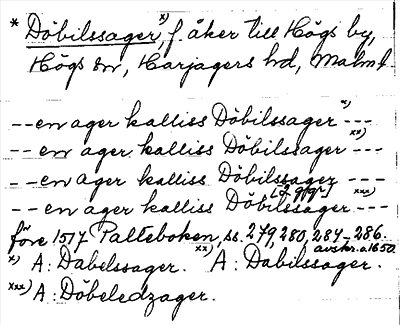 * Döbilssager, x) f. åker till Högs by,
Högs sn, Harjagers hd, Malm.l.
--en ager kalliss Döbilssager x) ---
-- en ager kalliss Döbilssager xx) ---
--en ager kalliss Döbilssager ---
en ager kalliss Döbilssager [2 ggr] xxx) ---
före 1517 Palteboken, ss. 279, 280, 284-286.
avskr. o. 1650
x) A: Dabelssager. xx) A: Dabilssager.
xxx) A: Döbeledzager.